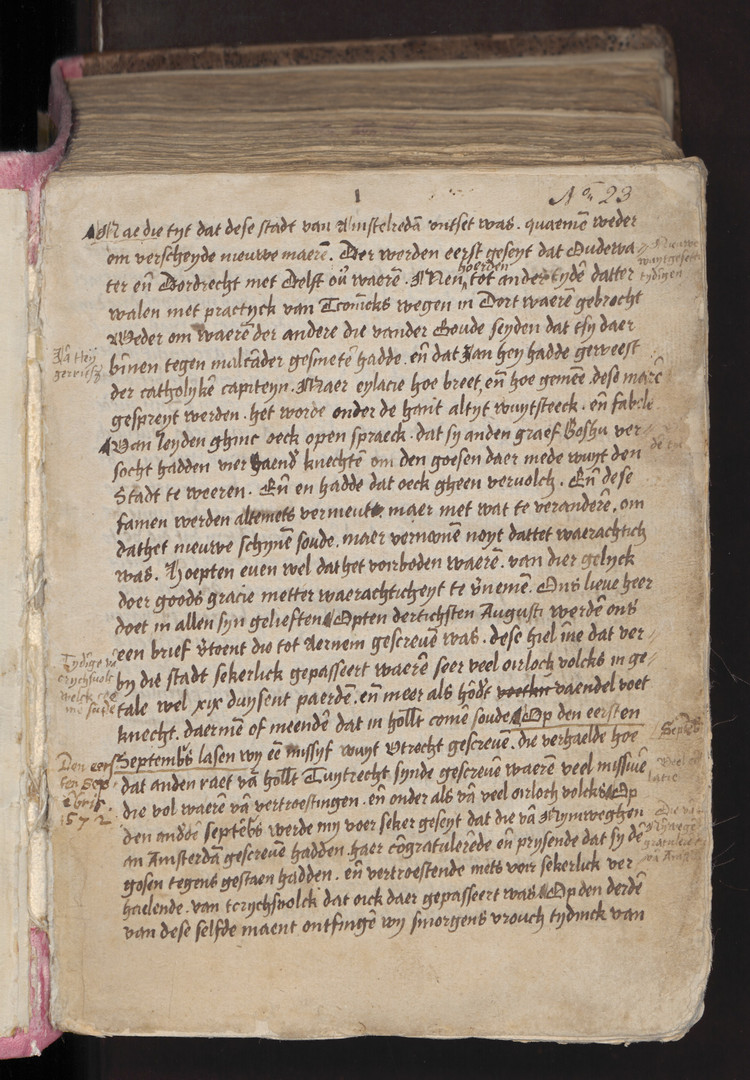 1
No. 23
Nae die tyt dat dese stadt van Amstelredā ontset was. quaemē weder
om verscheyde nieuwe maerē. Der werden eerst geseyt dat Oudewa
ter eñ Dordrecht met Delft oū waerē. Men hoerden tot anderstydē datter
walen met practyck van Tconicks wegen in Dort waerē gebrocht
Weder om waerē der andere die vander Goude seyden dat tsy daer
binen tegen malcāder gesmetē hadde. eñ dat Jan hey hadde geweest
der catholykē capiteyn. Maer eylacie hoe breet, eñ hoe gemeē dese marē
gespreyt werden. het worde onder de hant altyt wuytsteeck. eñ fabule
Van leyden ghinc oeck open spraeck. dat sy anden graef Boshu ver
socht hadden vier vaend knechtē om den goesen daer mede wuyt den
Stadt te weeren. Eñ en hadde dat oeck gheen vervolch. Eñ dese
famen werden altemets vermeut. maer met wat te veranderē, om
dathet nieuwe schynē soude. maer vernomē noyt dattet waerachtich
was. Hoepten even wel dathet voirboden waerē. van dier gelyck
doer goods gracie metter waerachticheyt te v̄nemē. Ons lieve heer
doet in allen syn gelieften. Opten dertichsten Augusti werdē ons
een brief v̄toent die tot Aernem gescreuē was. dese hiel īne dat ver
by die stadt sekerlick gepasseert waerē seer veel oirloch volcks in ge
tale wel xix duysent paerdē. eñ meer als hōdt vaendel voet
knecht. daermē of meendē dat in hollt comē soude. Op den eersten
Septembs lasen wy eē missyf wuyt Vtrecht gescreuē. die verhaelde hoe
dat anden raet vā hollt Tuytrecht synde gescreuē waerē veel missiuē
die vol waerē vā vertroestingen. eñ onder als vā veel oirloch volcks. Op
den anderē septēbs werde my voer seker geseyt dat die vā Nymweghen
an Amsterdā gescreuē hadden. haer cōgratulerēde eñ prysende dat sy de
gosen tegens gestaen hadden. eñ vertroestende mets voir sekerlick ver
haelende. van tcrychsvolck dat oick daer gepasseert was. Op den derdē
van dese selfde maent ontfingē wy smorgens vrouch tydinck van
Nieuwe
wuytgesette
tydigen
Jā Hey
gerriesz
Tydige vā
crychsvolc
welck
Den eers
ten Sep
tēbris.
1572
Septēb